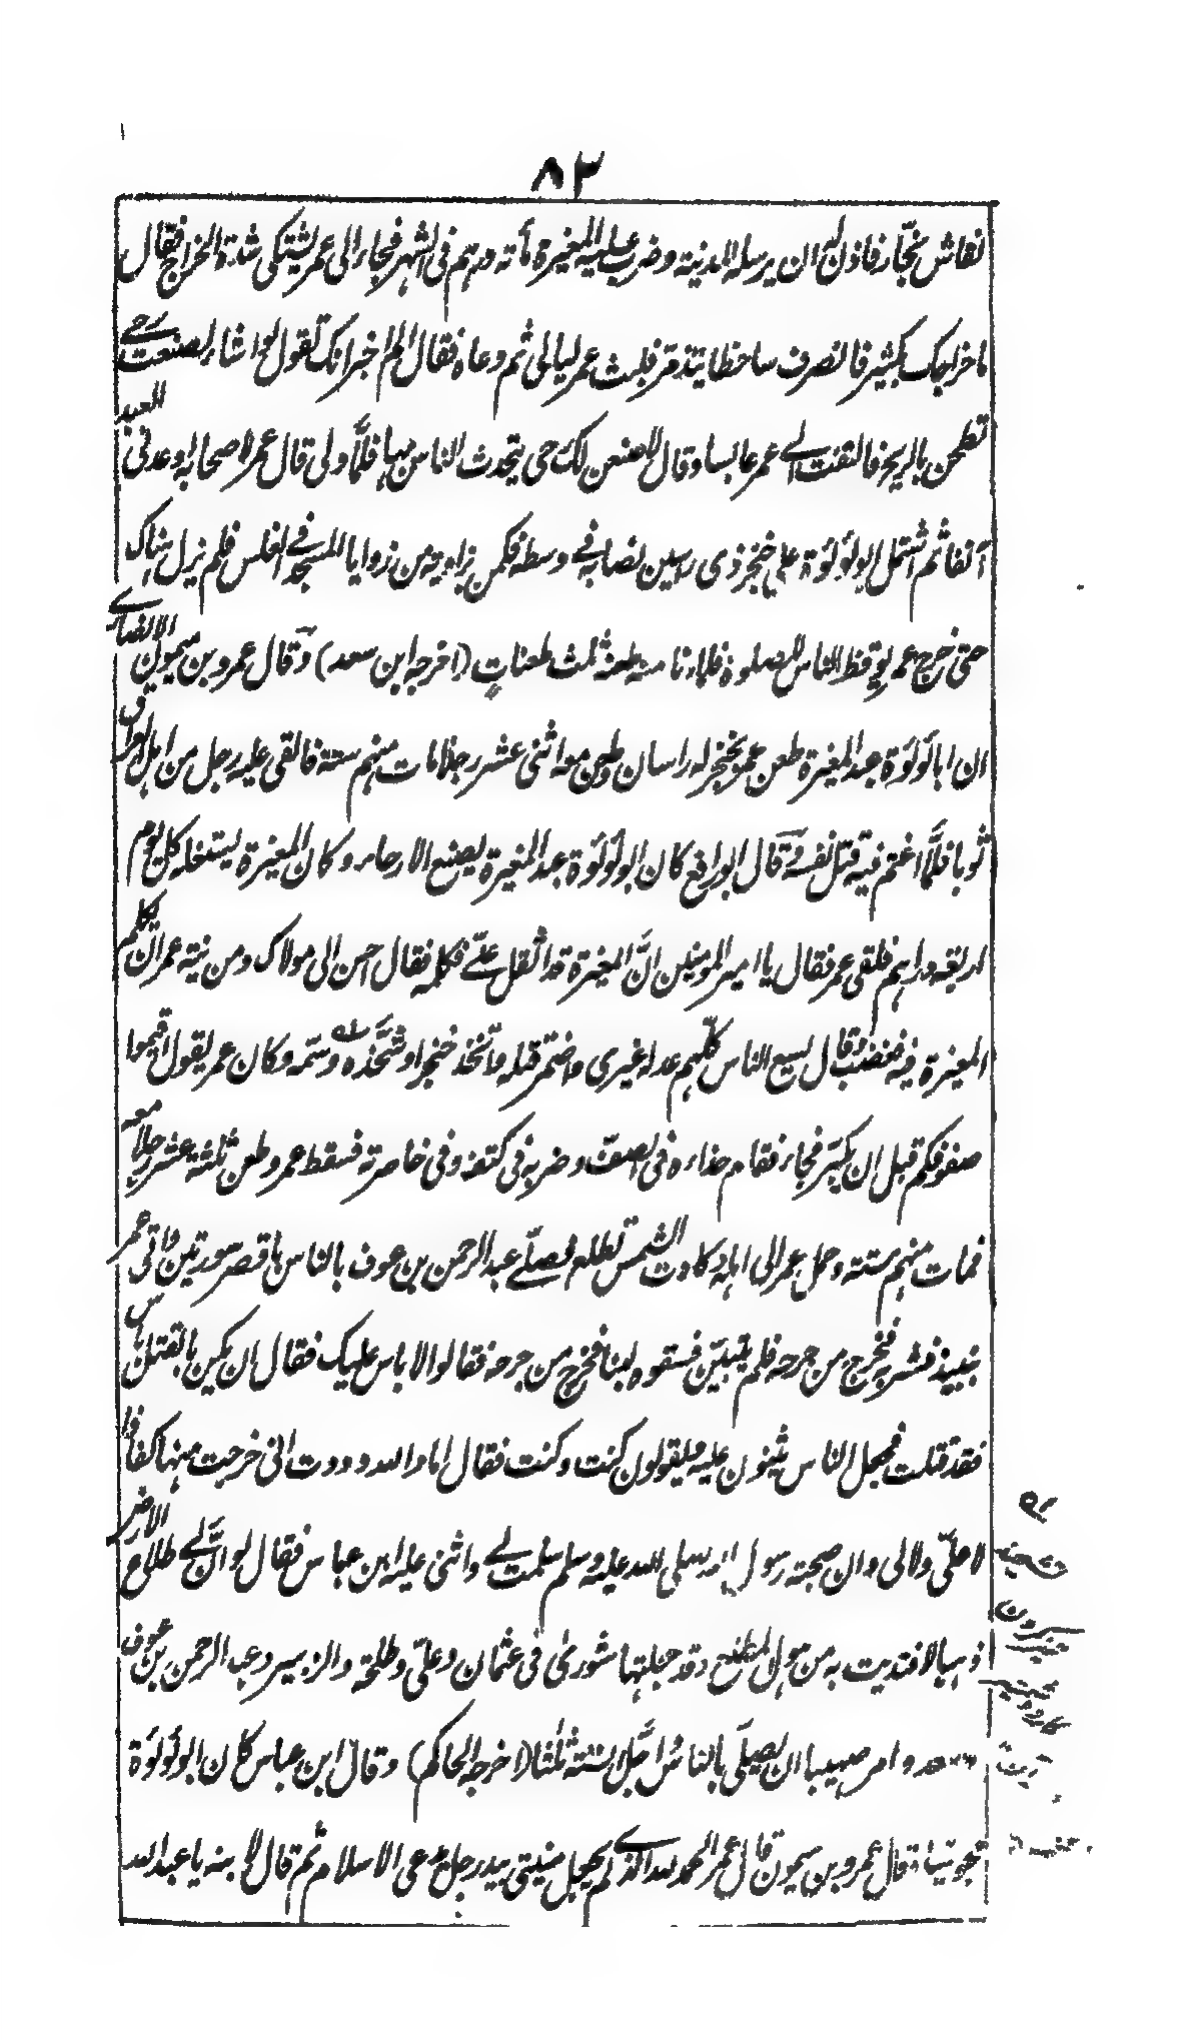 ٨٣
نقاش نجّار فاذن له ان يرسله المدينة وضرب عليه المغيرة مأته درهم فى الشهر فجاء الى عمر يشتكى شدة الخراج فقال
ما خراجك بكثير فانصرف ساخطا يتذمر فلبث عمر ليالى ثم دعاه فقال الم اخبر انك تقول لو اشاء لصنعت رحى
تطحن بالريح فالتفت الے عمر عابسا وقال لاصنعن لك رحى يتحدث الناس بها فلمّا ولى قال عمر لاصحابه اوعدنى العبد
آنفا ثم اشتمل ابو لؤلؤة على خنجر ذى راسين نصابه فے وسطه فكمن بزاوية من زوايا المسجد فے الغلس فلم يزل هناك
حتى خرج عمر يوقظ الناس للصلوة فلما دنا منه طعنه ثلث طعنات (اخرجه ابن سعد) وقال عمرو بن ميمون الانصارے
ان ابا لؤلؤة عبد المغيرة طعن عمر بخنجر له راسان وطعن معه اثنى عشر رجلا مات منهم ستة فالقى عليه رجل من اهل العراق
ثوبا فلمّا اغتم فيه قتل نفسه وقال ابو رافع كان ابو لؤلؤة عبد المغيرة يصنع الارحاء وكان المغيرة يستغله كل يوم
اربعة دراهم فلقى عمر فقال يا امير المومنين انّ المغيرة قد اثقل علىّ فكلمه فقال احسن الى مولاك ومن نية عمر ان يكلم
المغيرة فيه فغضب وقال يسع الناس كلّهم عدله غيرى واضمر قتله واتّخذ خنجرا وشحّذه وسمّه وكان عمر يقول اقيموا
صفوفكم قبل ان يكبّر فجاء فقام حذاءه فى الصفّ وضربه فى كتفه وفى خاصرته فسقط عمر وطعن ثلثة عشر رجلا معه
فمات منهم ستة وحمل عمر الى اهله وكادت الشمس تطلع فصلّے عبد الرحمن بن عوف بالناس باقصر سورتين واتى عمر
بنبيذ فشربه فخرج من جرحه فلم يتبيّن فسقوه لبنا فخرج من جرحه فقالوا لا باس عليك فقال ان يكن بالقتل باس
فقد قتلت فجعل الناس يثنون عليه ويقولون كنت وكنت فقال اما والله وددت انى خرجت منها كفافا
لا علىّ ولا لى وان صحبة رسول الله صلى الله عليه وسلم سلمت لے واثنى عليه ابن عباس فقال لو انّ لے طلاع الارض
ذهبا لافتديت به من هول المطلع وقد جعلتها شورى فى عثمان وعلىّ وطلحة والزبير وعبد الرحمن بن عوف
وسعد وامر صهيبا ان يصلّى بالناس واجّل الستة ثلثا (اخرجه الحاكم) وقال ابن عباس كان ابو لؤلؤة
مجوسيا وقال عمرو بن ميمون قال عمر الحمد لله الذے لم يجعل منيتى بيد رجل يدعى الاسلام ثم قال لابنه يا عبد الله